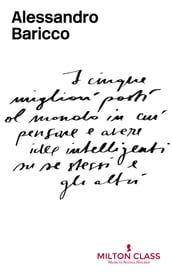 Alessandro
Baricco
I cinque
migliori posti
al mondo in cui
pensare e avere
idee intelligenti
su se stessi e
gli altri
MILTON CLASS
MADE IN SCUOLA HOLDEN